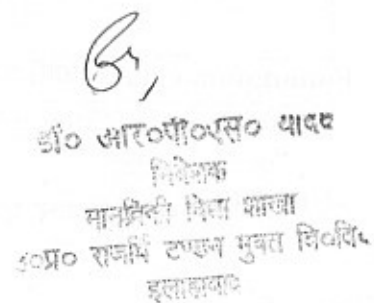 डॉ० आर०पी०एस० यादव
निदेशक
मानविकी विद्या शाखा
उ०प्र० राजर्षि टण्डन मुक्त वि०वि०
इलाहाबाद